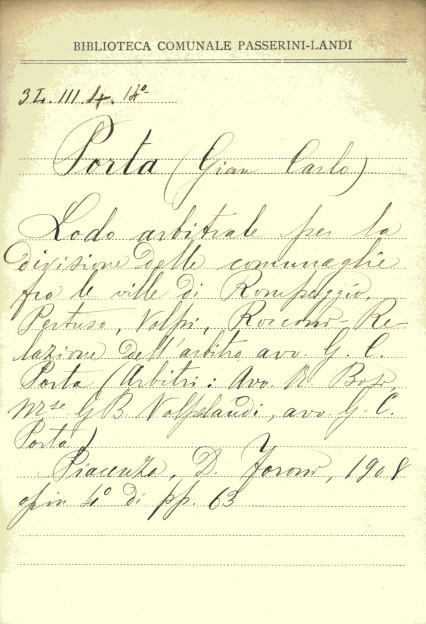 BIBLIOTECA COMUNALE PASSERINI-LANDI
3L. III. 4. 14°
Porta (Gian Carlo)
Lodo arbitrale per la
divisione delle comunaglie
fra le ville di Rompeggio,
Pertuso, Volpi, Rocconi- Re-
lazione dell'arbitro avv. G. C.
Porta (Arbitri: Avv. R.
Mse G B. Volpelandi, avv. G. C.
Porta)
Piacenza, D. Foroni, 1908
opin 4° di pp. 63